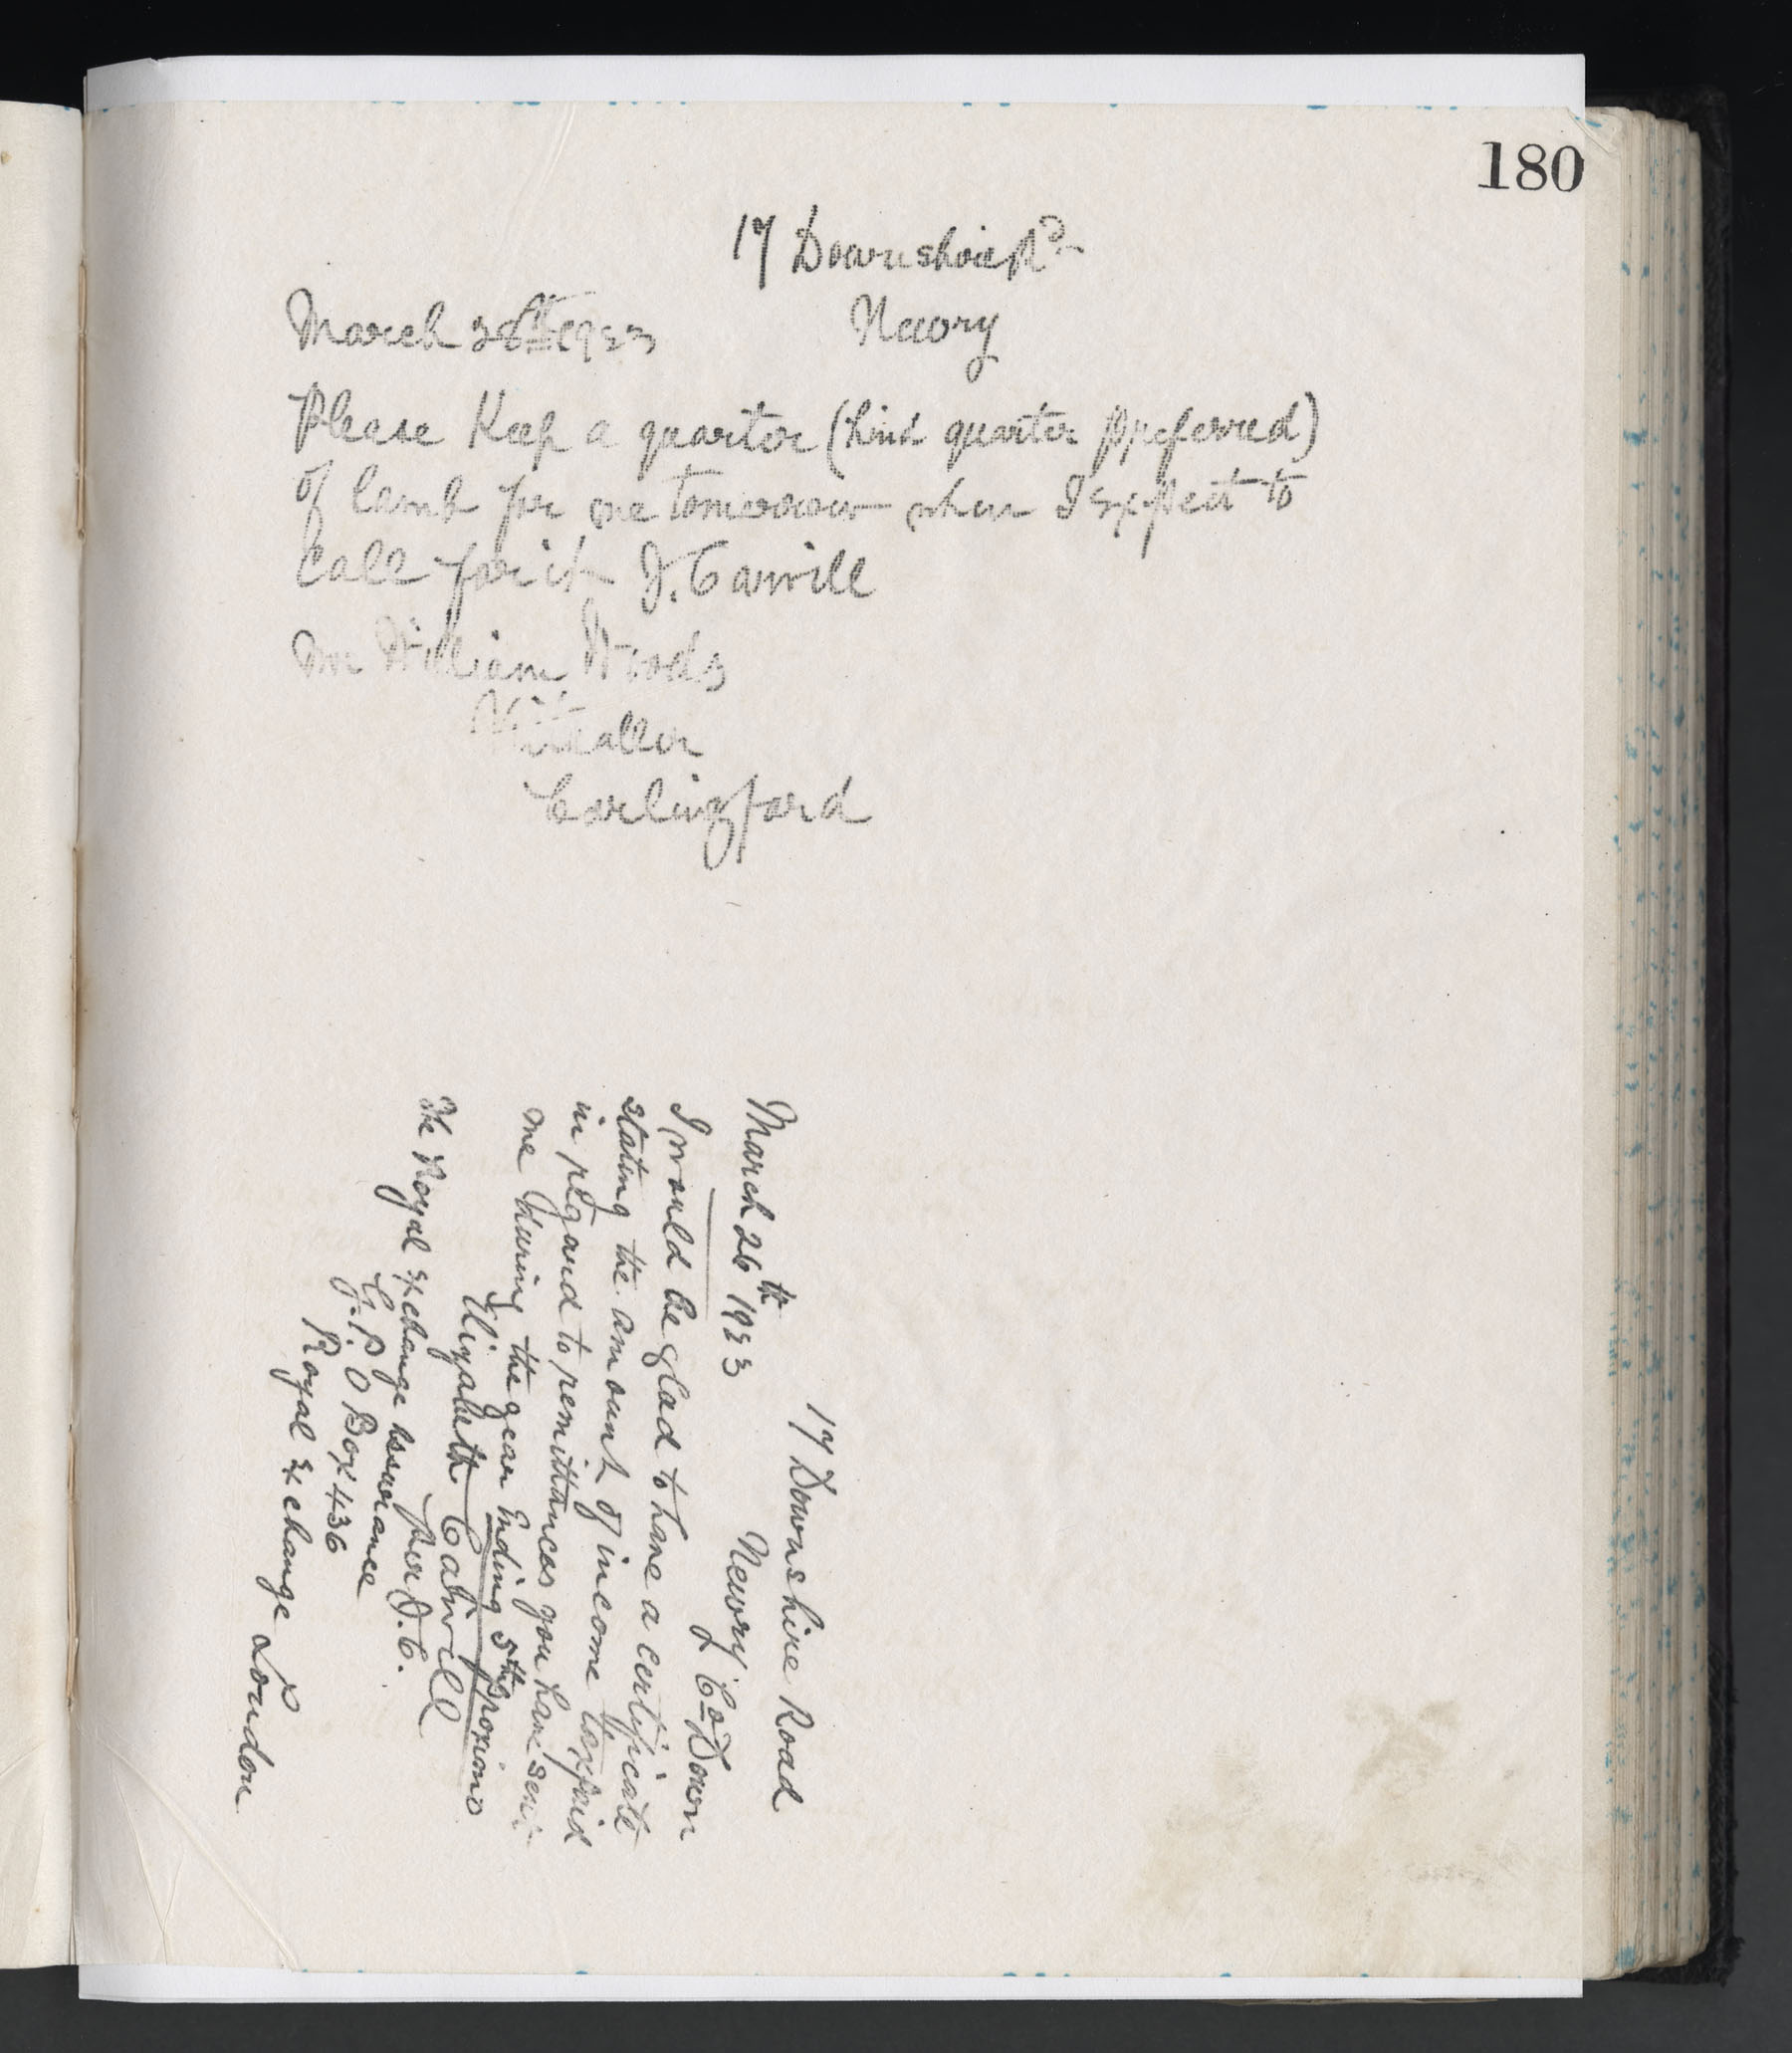 180
17 Downshire Rd
March 28th 1933 Newry
Please Keep a quarter (hind quarter preferred)
of lamb for me tomorrow when I expect to
call for it J. Carvill
Mr William Woods
Victualler
Carlingford
17 Downshire Road
March 26th 1933 Newry Co Down
I would be glad to have a certificate
stating the amount of income tax paid
in regard to remittances you have sent
me during the year Ending 5th proximo
Elizabeth Carvill
per J. C.
The Royal Exchange Assurance
G.P.O Box 436
Royal Exchange London